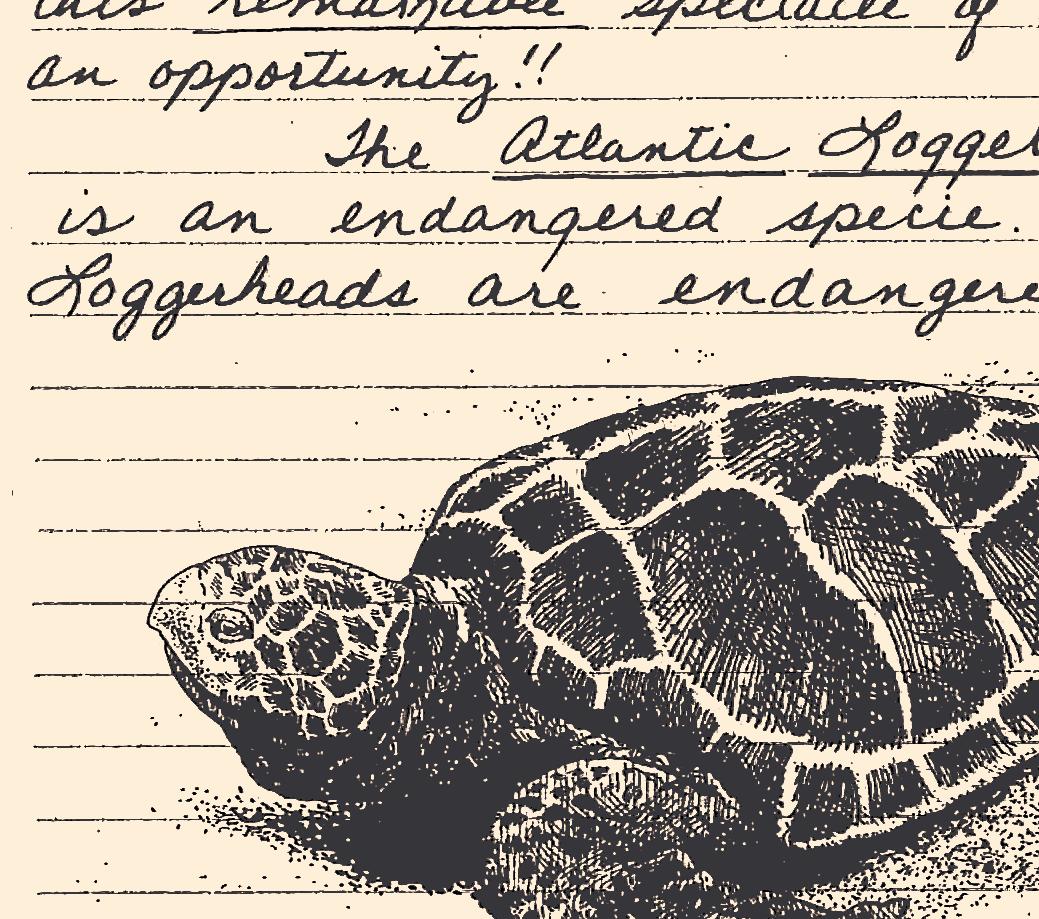 this remarkable spectacle of
an opportunity!!
The Atlantic Logger
is an endangered specie.
Loggerheads are endangere